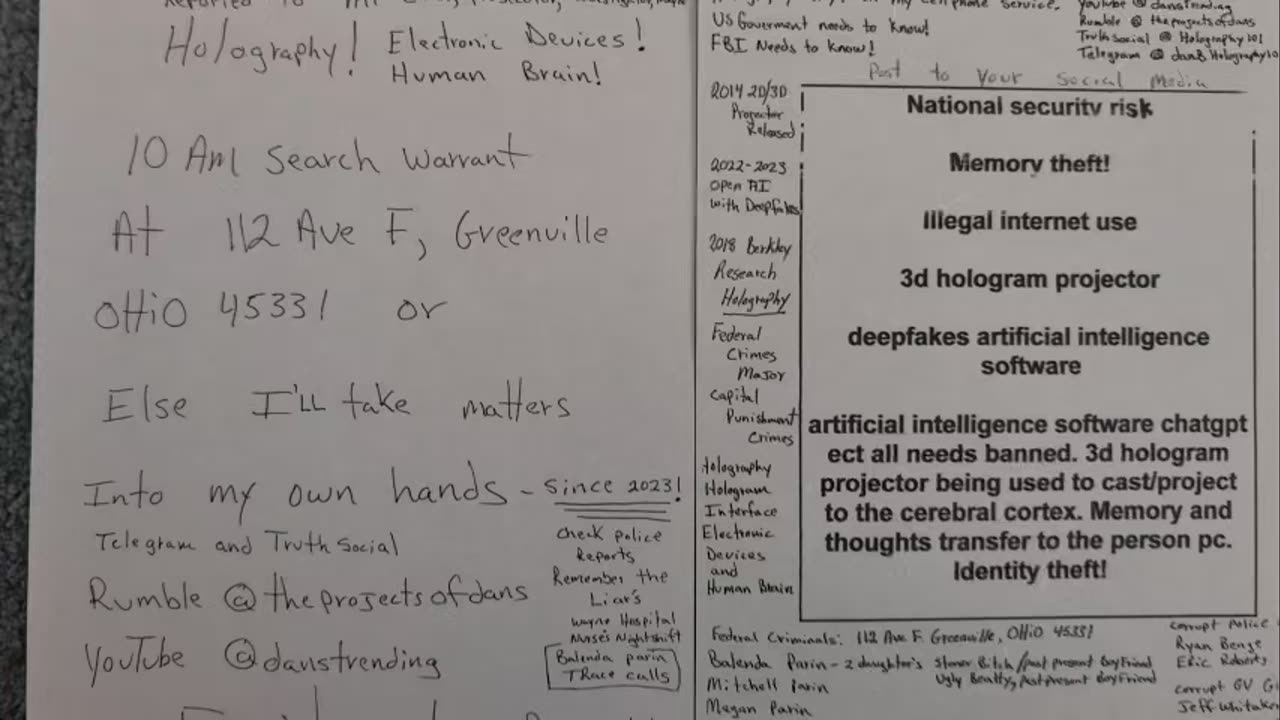 Holography! Electronic Devices!
Human Brain!
10 AM Search Warrant
At 112 Ave F, Greenville
OHiO 45331 or
Else I'll take matters
Into my own hands - since 2023!
Telegram and Truth Social
Rumble @theprojectsofdans
YouTube @danstrending
check police
Reports
Remember the
Liar's
Wayne Hospital
Nurse's Nightshift
Balenda parin
TRace calls
my cellphone service.
US Goverment needs to know!
FBI Needs to know!
YouTube @ danstrending
Rumble @ theprojectsofdans
Truth Social @ Holography101
Telegram @
Post to Your Social Media
2014 2D/3D
Projector
Released
2022-2023
Open AI
with Deepfakes
2018 Berkley
Research
Holography
Federal
Crimes
Major
Capital
Punishment
Crimes
Holography
Hologram
Interface
Electronic
Devices
and
Human Brain
National security risk
Memory theft!
Illegal internet use
3d hologram projector
deepfakes artificial intelligence
software
artificial intelligence software chatgpt
ect all needs banned. 3d hologram
projector being used to cast/project
to the cerebral cortex. Memory and
thoughts transfer to the person pc.
Identity theft!
Federal Criminals: 112 Ave F. Greenville, OHiO 45331
Balenda Parin - 2 daughter's Stoner Bitch/past present Boyfriend
Ugly Beatty, past present Boyfriend
Mitchell Parin
Megan Parin
corrupt Police
Ryan Benge
Eric Roberts
corrupt GV
Jeff Whitaker